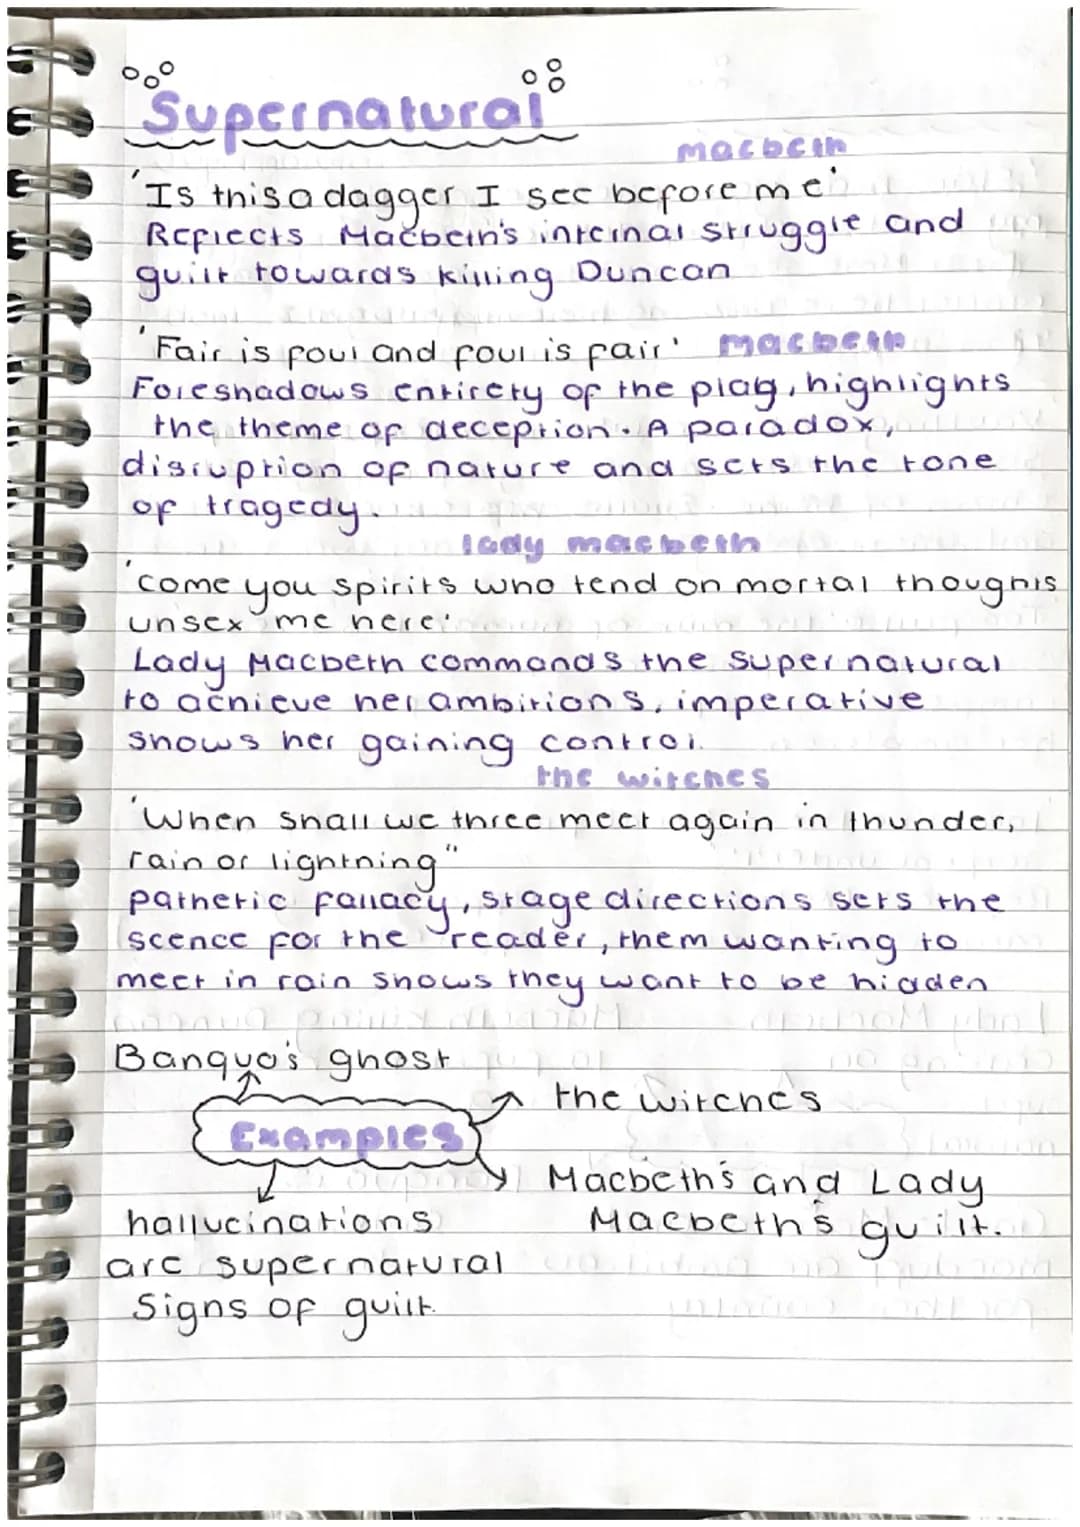 Supernatural
macbeth
'Is this a dagger I see before me'
Reflects Macbeth's internal struggle and
guilt towards killing Duncan
'Fair is foul and foul is fair' macbeth
Foreshadows entirety of the play, highlights
the theme of deception. A paradox,
disruption of nature and sets the tone
of tragedy.
lady macbeth
'come you spirits who tend on mortal thoughts
unsex me here'
Lady Macbeth commands the supernatural
to achieve her ambitions, imperative
shows her gaining control.
the witches
'When shall we three meet again in thunder,
rain or lightning"
pathetic fallacy, stage directions sets the
scence for the reader, them wanting to
meet in rain shows they want to be hidden
Banquo's ghost
the witches
Examples
Macbeth's and Lady
Macbeth's guilt.
hallucinations
are supernatural
Signs of guilt.